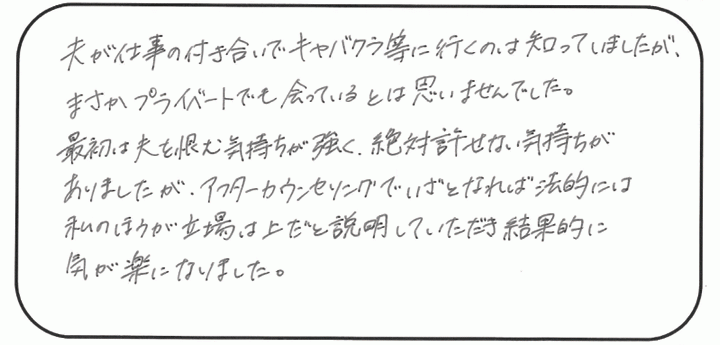 夫が仕事の付き合いでキャバクラ等に行くのは知っていましたが、
まさかプライベートでも会っているとは思いませんでした。
最初は夫を恨む気持ちが強く、絶対許せない気持ちが
ありましたが、アフターカウンセリングでいざとなれば法的には
私のほうが立場は上だと説明していただき結果的に
気が楽になりました。